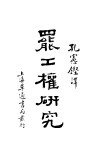 孔憲鏗譯
罷工權研究
上海華通書局發行